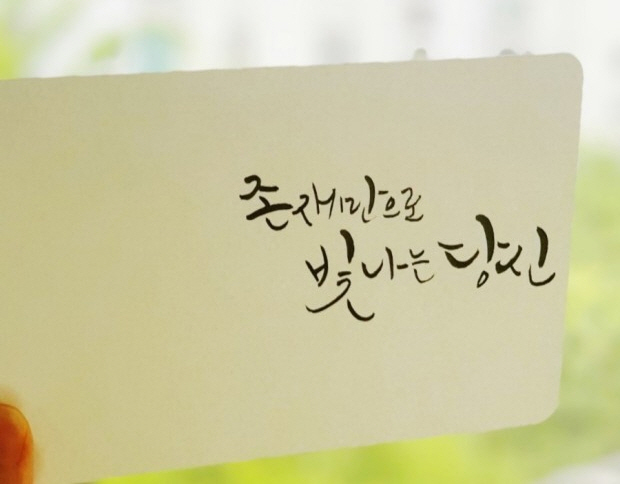 존재만으로
빛나는 당신